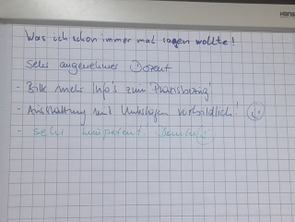 Was ich schon immer mal sagen wollte!
Sehr angenehmer Dozent
- Bitte mehr Info's zum Praxisbezug
- Ausstattung mit Unterlagen vorbildlich!
- sehr kompetent